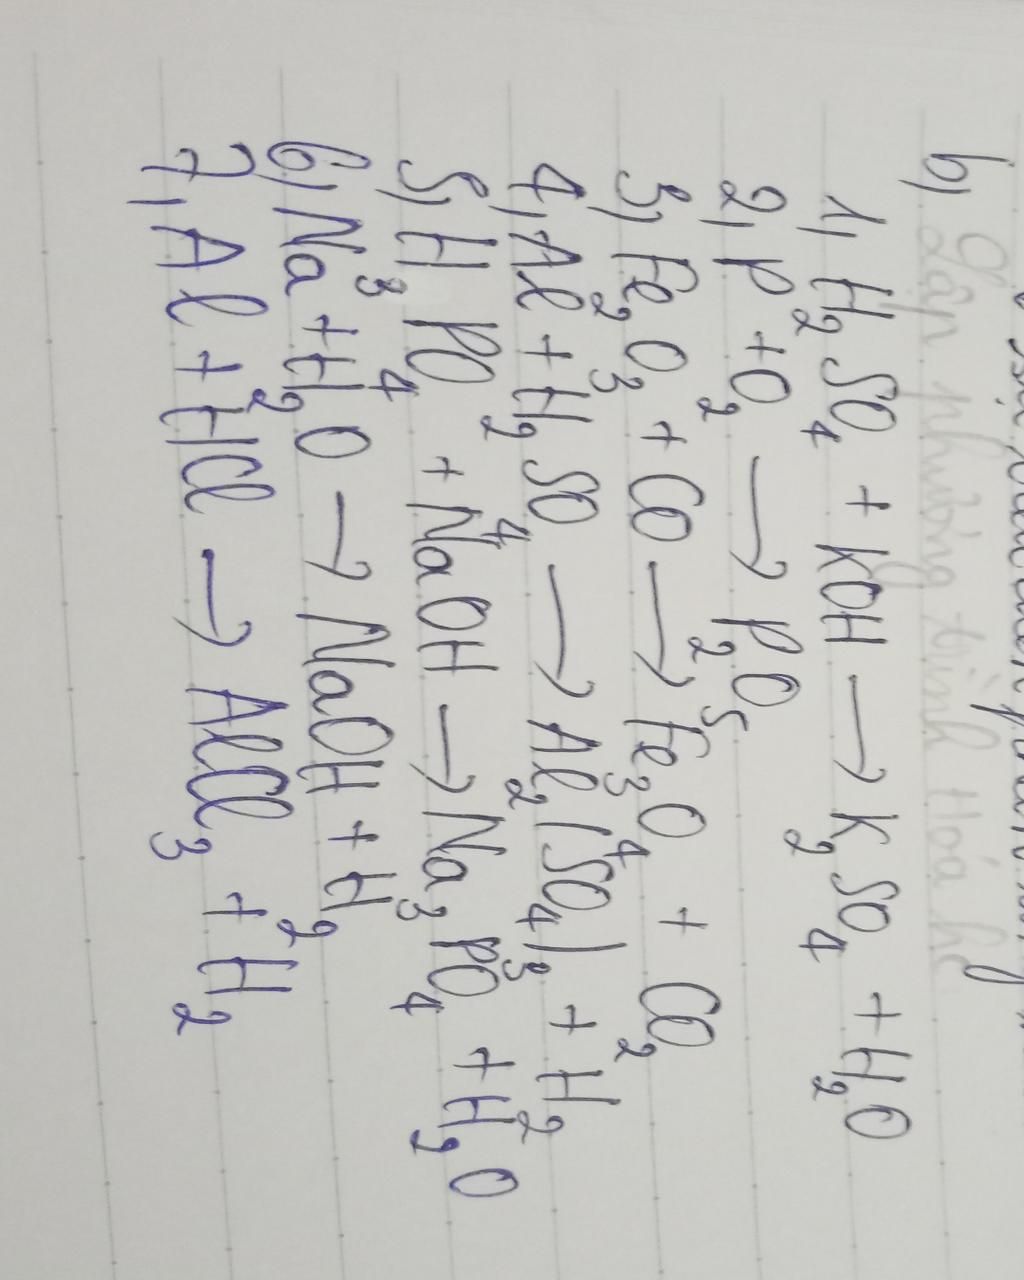 b, Lập phương trình Hoá học
1, H₂SO₄ + KOH → K₂SO₄ + H₂O
2, P + O₂ → P₂O₅
3, Fe₂O₃ + CO → Fe₃O₄ + CO₂
4, Al + H₂SO₄ → Al₂(SO₄)₃ + H₂
5, H₃PO₄ + NaOH → Na₃PO₄ + H₂O
6, Na + H₂O → NaOH + H₂
7, Al + HCl → AlCl₃ + H₂